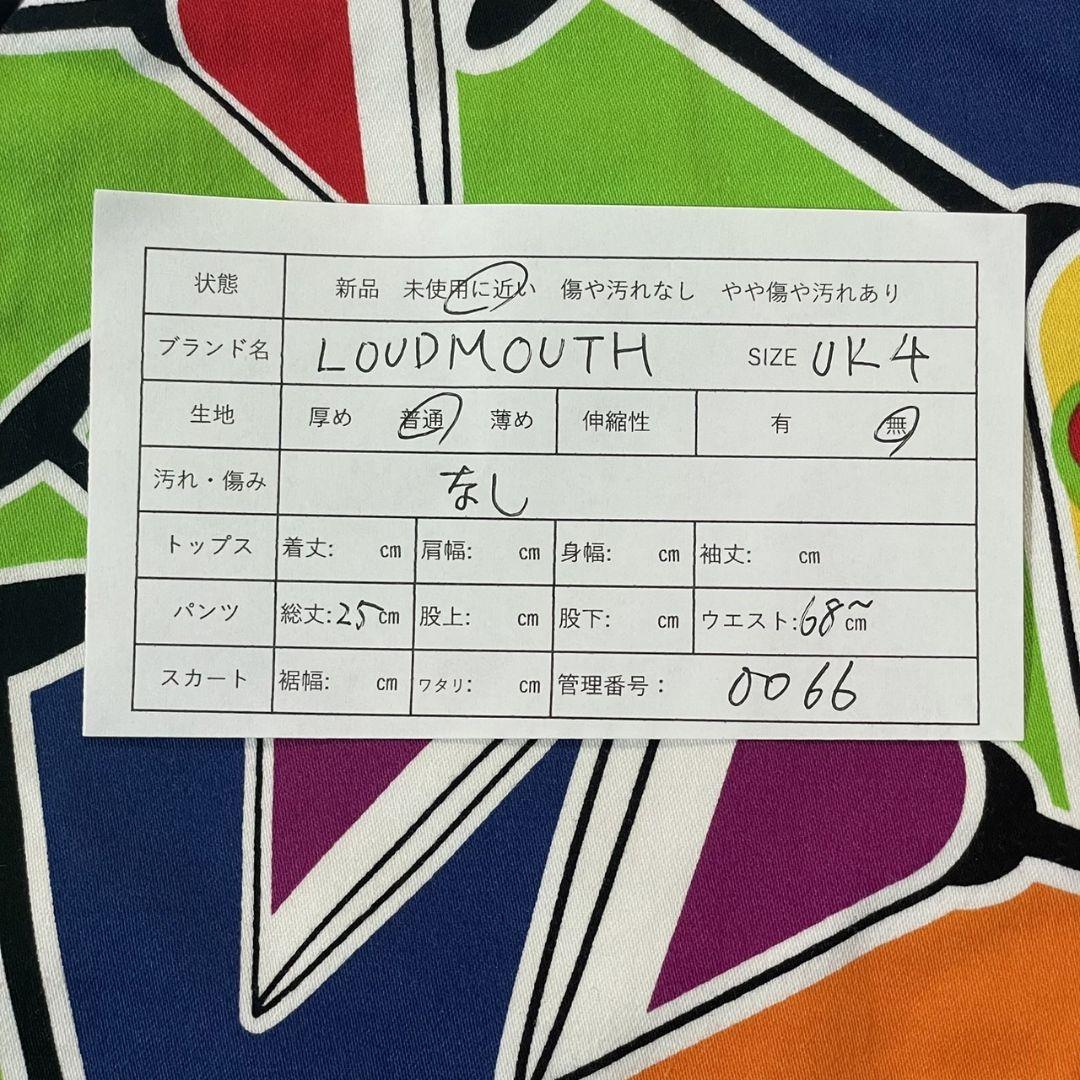 状態 新品 未使用に近い 傷や汚れなし やや傷や汚れあり
ブランド名 LOUDMOUTH SIZE UK4
生地 厚め 普通 薄め 伸縮性 有 無
汚れ・傷み なし
トップス 着丈: cm 肩幅: cm 身幅: cm 袖丈: cm
パンツ 総丈:25cm 股上: cm 股下: cm ウエスト:68~cm
スカート 裾幅: cm ワタリ: cm 管理番号: 0066